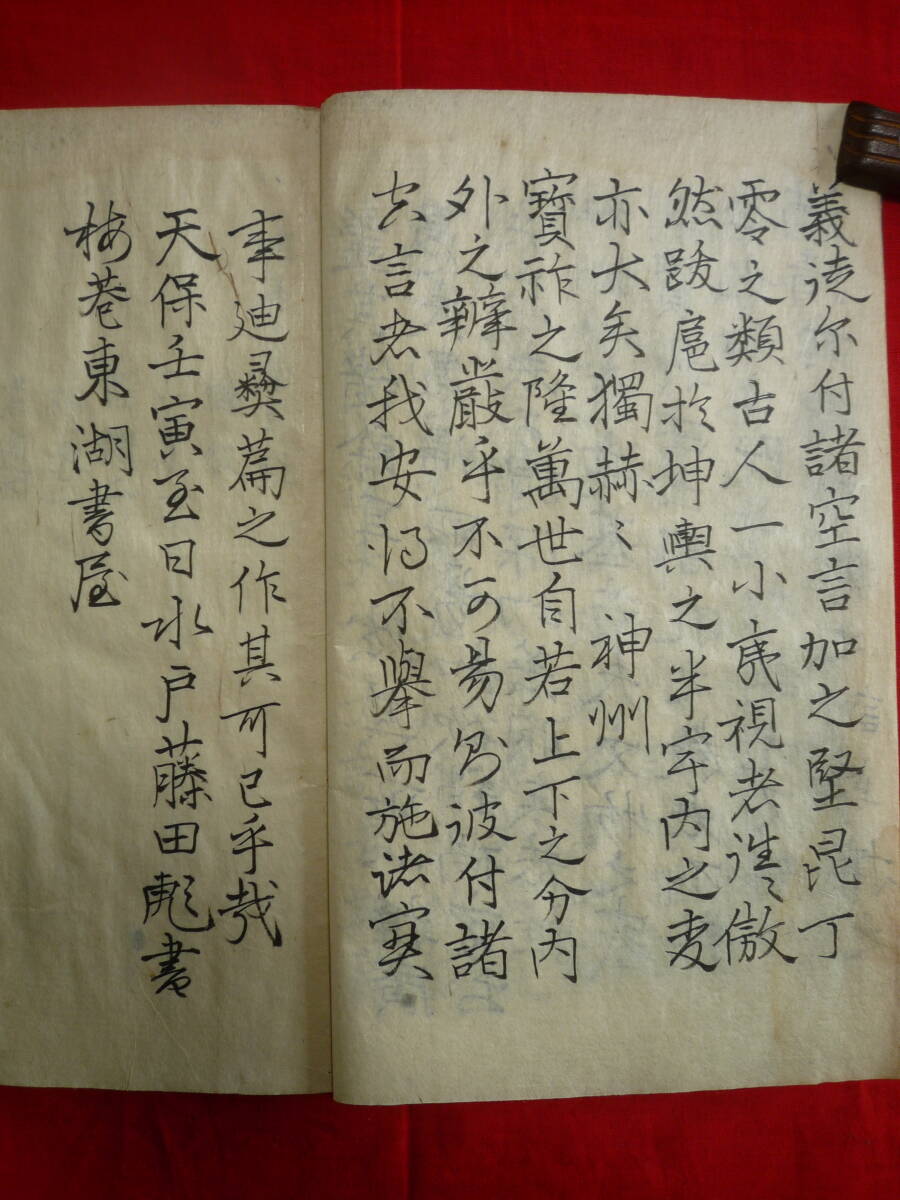 義徒尓付諸空言加之堅昆丁
零之類古人一小夷視者往〻傲
然跋扈於坤輿之半宇内之変
亦大矣獨赫〻　神州
寶祚之隆萬世自若上下之分内
外之辨嚴乎不可易則彼付諸
空言者我安得不擧而施諸実
事迪彛篇之作其可已乎哉
天保壬寅至日水戸藤田彪書
梅巷東湖書屋